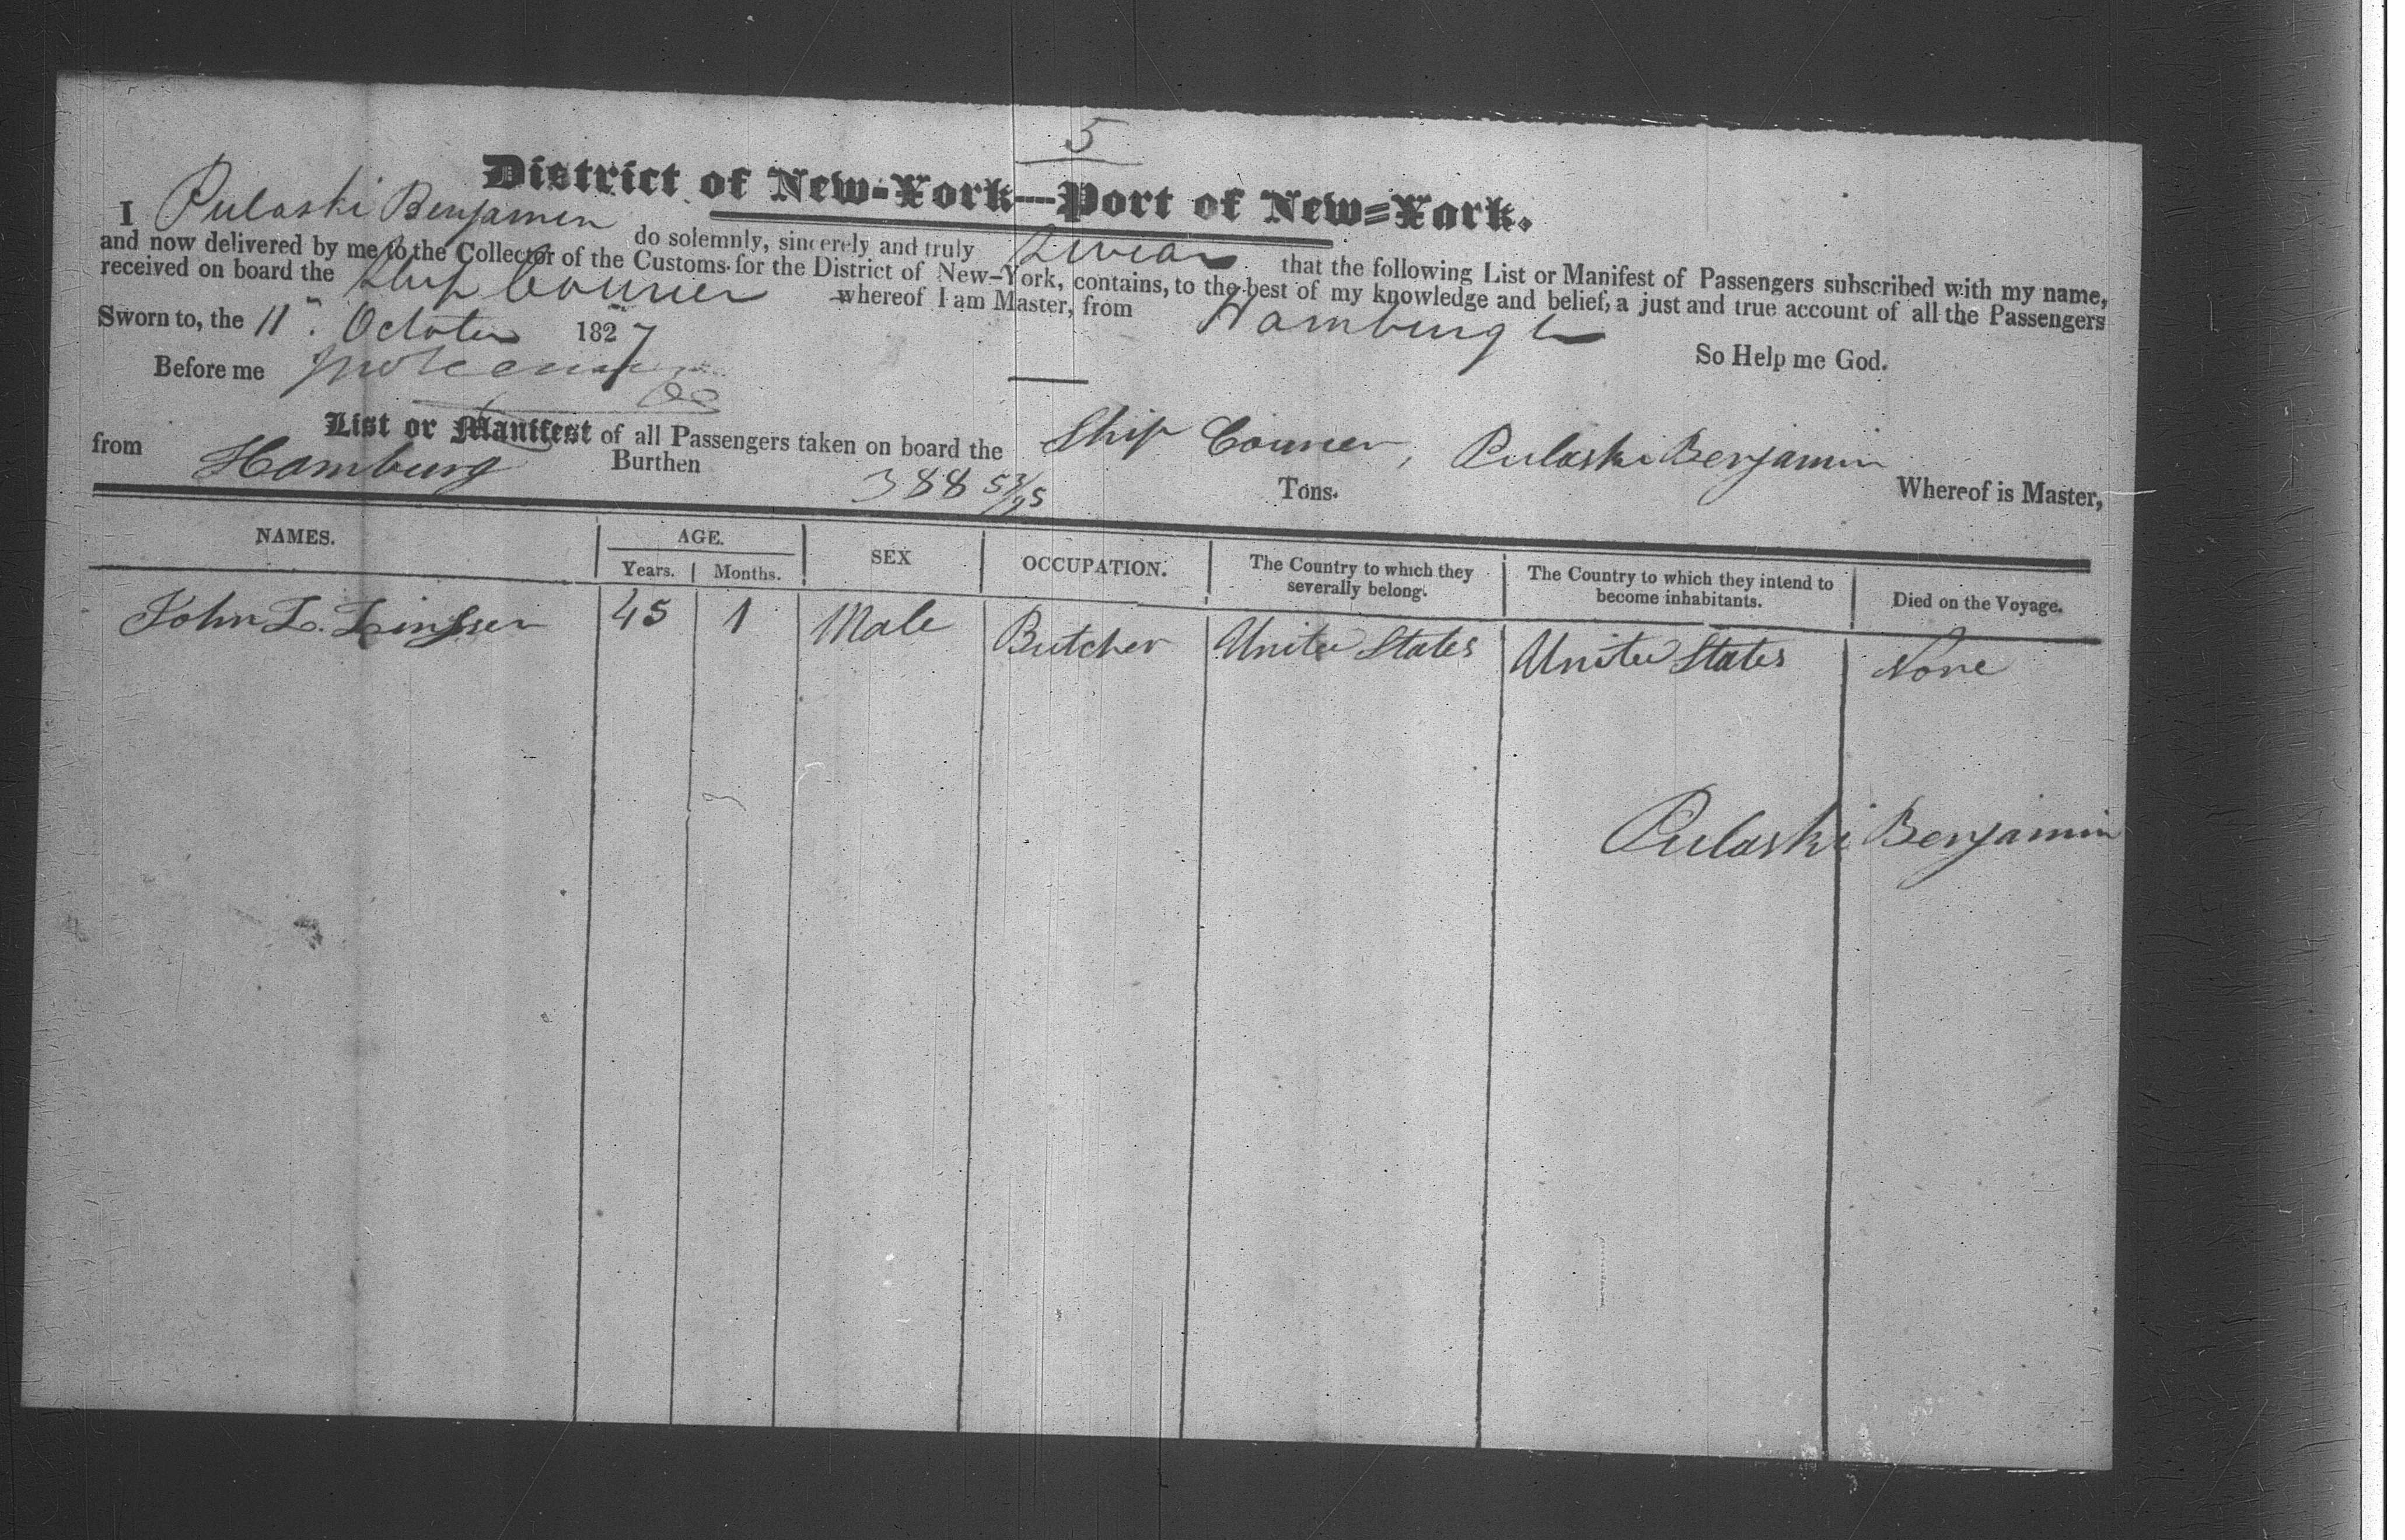 5
District of New-York—Port of New-York.
I Pulaski Benjamin do solemnly, sincerely and truly Swear that the following List or Manifest of Passengers subscribed with my name,
and now delivered by me to the Collector of the Customs for the District of New-York, contains, to the best of my knowledge and belief, a just and true account of all the Passengers
received on board the Ship Courier whereof I am Master, from Hamburgh
Sworn to, the 11th October 1827 So Help me God.
Before me
List or Manifest of all Passengers taken on board the Ship Courier, Pulaski Benjamin Whereof is Master,
from Hamburg Burthen 388 53/95 Tons.
NAMES. AGE. SEX OCCUPATION. The Country to which they severally belong. The Country to which they intend to become inhabitants. Died on the Voyage.
Years. Months.
John L. Linsser 45 1 Male Butcher United States United States None
Pulaski Benjamin